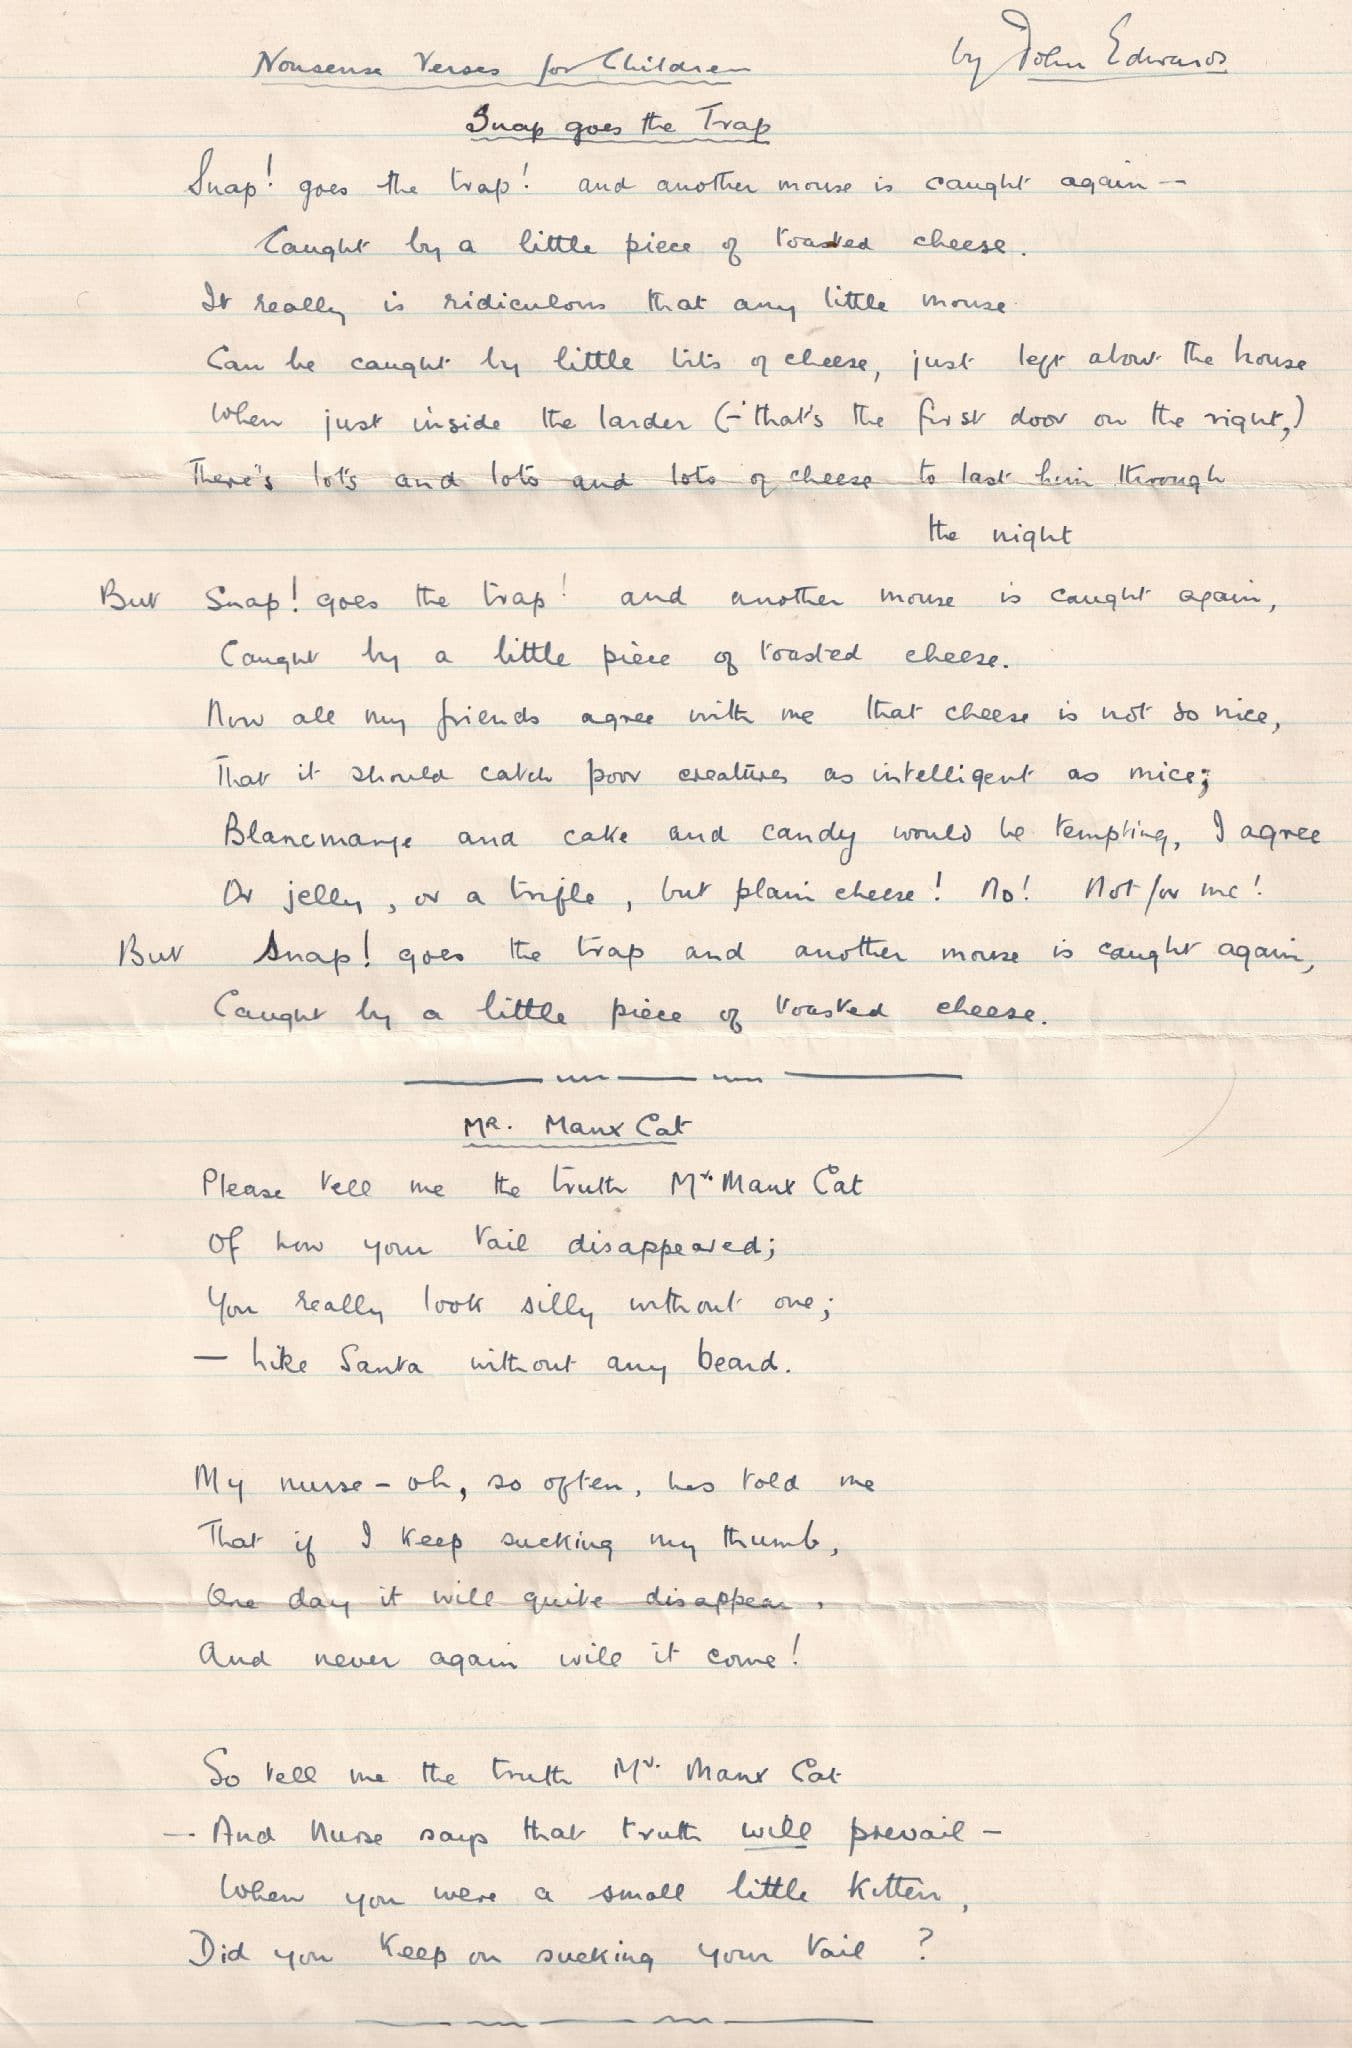 Nonsense Verses for Children by John Edwards
Snap goes the Trap
Snap! goes the trap! and another mouse is caught again —
Caught by a little piece of toasted cheese.
It really is ridiculous that any little mouse
Can be caught by little bits of cheese, just left about the house
When just inside the larder (- that's the first door on the right,)
There's lots and lots and lots of cheese to last him through
the night
But Snap! goes the trap! and another mouse is caught again,
Caught by a little piece of toasted cheese.
Now all my friends agree with me that cheese is not so nice,
That it should catch poor creatures as intelligent as mice;
Blancmange and cake and candy would be tempting, I agree
Or jelly, or a trifle, but plain cheese! No! Not for me!
But Snap! goes the trap and another mouse is caught again,
Caught by a little piece of toasted cheese.
Mr. Manx Cat
Please tell me the truth Mr. Manx Cat
Of how your tail disappeared;
You really look silly without one;
— Like Santa without any beard.
My nurse – oh, so often, has told me
That if I keep sucking my thumb,
One day it will quite disappear,
And never again will it come!
So tell me the truth Mr. Manx Cat
— And Nurse says that truth will prevail —
When you were a small little kitten,
Did you keep on sucking your tail ?